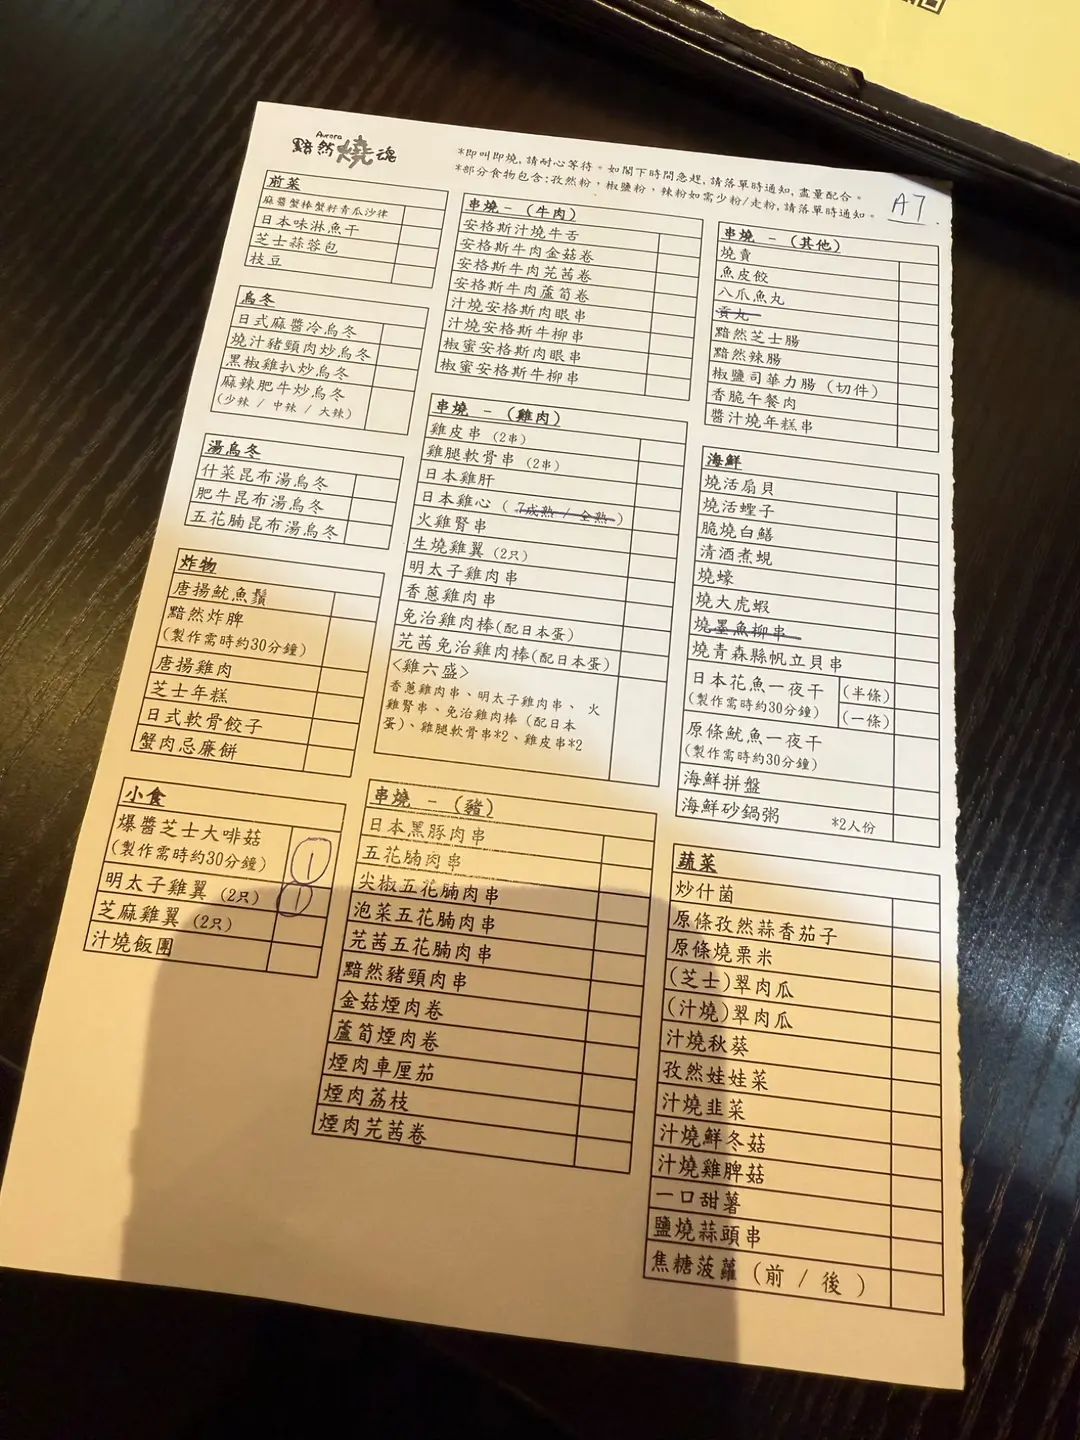 Aurora
黯然燒魂
*即叫即燒,請耐心等待。如閣下時間急趕,請落單時通知,盡量配合。
*部分食物包含:孜然粉,椒鹽粉、辣粉如需少粉/走粉,請落單時通知。
A7
前菜
麻醬蟹棒蟹籽青瓜沙律
日本味淋魚干
芝士蒜蓉包
枝豆
烏冬
日式麻醬冷烏冬
燒汁豬頸肉炒烏冬
黑椒雞扒炒烏冬
麻辣肥牛炒烏冬
(少辣 / 中辣 / 大辣)
湯烏冬
什菜昆布湯烏冬
肥牛昆布湯烏冬
五花腩昆布湯烏冬
炸物
唐揚魷魚鬚
黯然炸脾
(製作需時約30分鐘)
唐揚雞肉
芝士年糕
日式軟骨餃子
蟹肉忌廉餅
小食
爆醬芝士大啡菇
(製作需時約30分鐘) 1
明太子雞翼 (2只) 1
芝麻雞翼 (2只)
汁燒飯團
串燒 - (牛肉)
安格斯汁燒牛舌
安格斯牛肉金菇卷
安格斯牛肉芫茜卷
安格斯牛肉蘆筍卷
汁燒安格斯肉眼串
汁燒安格斯牛柳串
椒蜜安格斯肉眼串
椒蜜安格斯牛柳串
串燒 - (雞肉)
雞皮串 (2串)
雞腿軟骨串 (2串)
日本雞肝
日本雞心 (7成熟 / 全熟)
火雞腎串
生燒雞翼 (2只)
明太子雞肉串
香蔥雞肉串
免治雞肉棒(配日本蛋)
芫茜免治雞肉棒(配日本蛋)
<雞六盛>
香蔥雞肉串、明太子雞肉串、 火
雞腎串、免治雞肉棒 (配日本
蛋)、雞腿軟骨串*2、雞皮串*2
串燒 - (豬)
日本黑豚肉串
五花腩肉串
尖椒五花腩肉串
泡菜五花腩肉串
芫茜五花腩肉串
黯然豬頸肉串
金菇煙肉卷
蘆筍煙肉卷
煙肉車厘茄
煙肉荔枝
煙肉芫茜卷
串燒 - (其他)
燒賣
魚皮餃
八爪魚丸
貢丸
黯然芝士腸
黯然辣腸
椒鹽司華力腸 (切件)
香脆午餐肉
醬汁燒年糕串
海鮮
燒活扇貝
燒活蟶子
脆燒白鱔
清酒煮蜆
燒蠔
燒大虎蝦
燒墨魚柳串
燒青森縣帆立貝串
日本花魚一夜干 (半條)
(製作需時約30分鐘) (一條)
原條魷魚一夜干
(製作需時約30分鐘)
海鮮拼盤
海鮮砂鍋粥 *2人份
蔬菜
炒什菌
原條孜然蒜香茄子
原條燒粟米
(芝士)翠肉瓜
(汁燒)翠肉瓜
汁燒秋葵
孜然娃娃菜
汁燒韭菜
汁燒鮮冬菇
汁燒雞脾菇
一口甜薯
鹽燒蒜頭串
焦糖菠蘿 (前 / 後 )